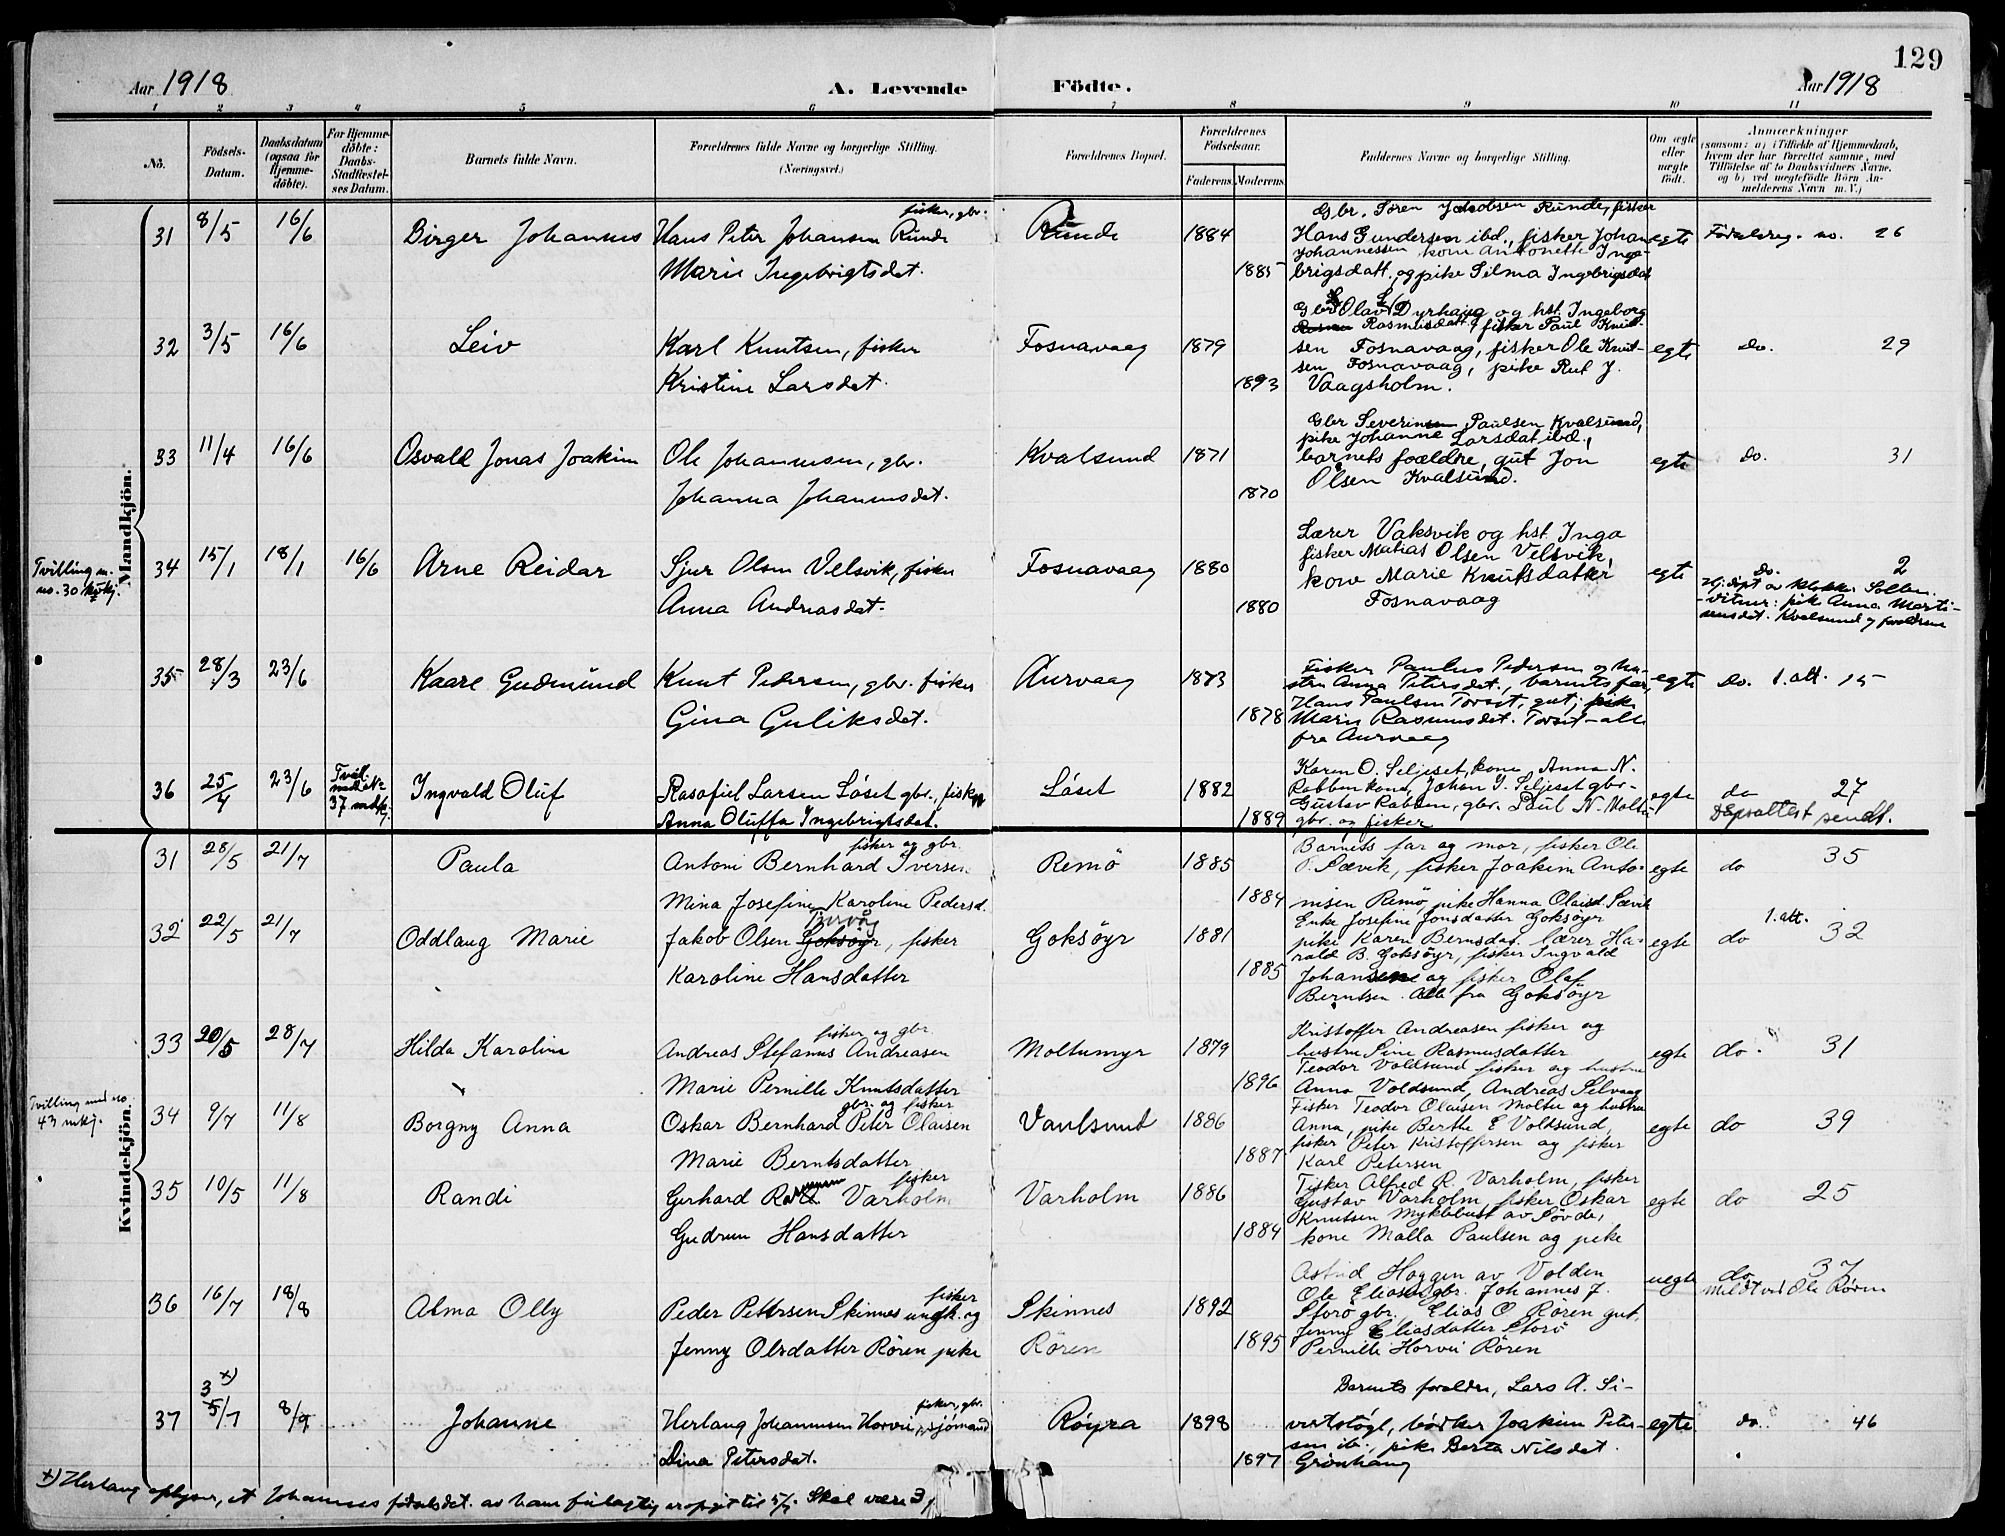 129
Aar 1918
A. Levende
Födte.
Aar 1918
1 2 3 4 5 6 7 8 9 10 11
No.
Födsels-Datum.
Daabsdatum (ogsaa for Hjemme-döbte).
For Hjemme-döbte: Daabs-Stadfæstel-ses Datum.
Barnets fulde Navn.
Forældrenes fulde Navne og borgerlige Stilling.
(Næringsvei.)
Forældrenes Bopæl.
Forældrenes Födselsaar.
Faderens. Moderens.
Faddernes Navne og borgerlige Stilling.
Om ægte eller uægte födt.
Anmærkninger
(saasom: a) i Tilfælde af Hjemmedaab,
hvem der har forrettet samme, med
Tilföielse af to Daabsvidners Navne,
og b) ved uægtefödte Börn An-
melderens Navn m. V.)
Mandkjön.
31 8/5 16/6 Birger Johannes
fisker, gbr.
Hans Peter Johansen Runde
Marie Ingebrigtsdat.
Runde 1884
1885
Gbr. Søren Jakobsen Runde, fisker
Hans Gundersen ibd., fisker Johan
Johannessen, kone Antonette Inge-
brigsdatt. og pike Silma Ingebrigsdat
egte Fødselsreg. no. 26
32 3/5 16/6 Leiv
Karl Knutsen, fisker
Kristine Larsdat.
Fosnavaag 1879
1893
Gbr Olav Dyrhaug og hst. Ingeborg
Rasmusdatt, fisker Paul Knut-
sen Fosnavaag, fisker Ole Knut-
sen Fosnavaag, pike Rut J.
Vaagsholm.
egte do. 29
33 11/4 16/6 Osvald Jonas Joakim
Ole Johannessen, gbr.
Johanna Johannesdat.
Kvalsund 1871
1870
Gbr Severin Paulsen Kvalsund,
pike Johanne Larsdat ibd.,
barnets forældre, gut Jon
Olsen Kvalsund.
egte do. 31
Tvilling m.
no. 30 kvkj.
34 15/1 18/1 16/6 Arne Reidar
Sjur Olsen Velsvik, fisker
Anna Andreasdat.
Fosnavaag 1880
1880
Lærer Vaksvik og hst. Inga
fisker Matias Olsen Velsvik,
kone Marie Knutsdatter
Fosnavaag
egte do. 2
Hj. døpt av klokker Solbu.
vitner: pike Anna Marti-
nusdat. Kvalsund og forældrene
35 28/3 23/6 Kaare Gudmund
Knut Pedersen, gbr. fisker
Gina Guliksdat.
Aurvaag 1873
1878
Fisker Paulus Pedersen og hu-
stru Anna Petersdat., barnets far,
Hans Paulsen Torset, gut; pike
Marie Rasmusdat. Torset - alle
fra Aurvaag
egte do. 1. att. 15
36 25/4 23/6
Tvil. med No 37 mdkj.
Ingvald Oluf
Rasafiel Larsen Løset gbr., fisker
Anna Oluffa Ingebrigtsdat.
Løset 1882
1889
Karen O. Seljeset, kone, Anna N.
Rabben kone, Johan G. Seljeset gbr.
Gustav Rabben, gbr. Paul N. Moltu
gbr. og fisker
egte do 27
Dåpsattest sendt.
Kvindekjön.
31 28/5 21/7 Paula
fisker og gbr.
Antoni Bernhard Iversen
Mina Josefine Karoline Pedersd.
Remö 1885
1884
Barnets far og mor, fisker Ole
P. Sævik, fisker Joakim Anto-
nisen Remö, pike Hanna Olaisd. Sævik
egte do 35
32 22/5 21/7 Oddlaug Marie
Jakob Olsen Goksöyr, fisker
Karoline Hansdatter
Goksöyr 1881
1885
Enke Josefine Jonsdatter Goksöyr
pike Karen Berntsdat. lærer Ha-
rald B. Goksöyr, fisker Ingvald
Johansen og fisker Olaf
Berntsen. Alle fra Goksöyr
egte do 1. att. 32
33 20/5 28/7 Hilda Karoline
fisker og gbr.
Andreas Stefanus Andreasen
Marie Pernille Knutsdatter
Moltumyr 1879
1896
Kristoffer Andreasen fisker og
hustru Sine Rasmusdatter
Teodor Voldsund fisker og hustru
Anna Voldsund, Andreas Selvaag
egte do. 31
Tvilling med no.
43 mkj.
34 9/7 11/8 Borgny Anna
gbr. og fisker
Oskar Bernhard Peter Olaisen
Marie Berntsdatter
Vaulsund 1886
1887
Fisker Teodor Olaisen Moltu og hustru
Anna, pike Berthe E Voldsund,
fisker Peter Kristoffersen og fisker
Karl Petersen
egte do 39
35 10/5 11/8 Randi
fisker
Gerhard Varholm
Gudrun Hansdatter
Varholm 1886
1884
Fisker Alfred R. Varholm, fisker
Gustav Varholm, fisker Oskar
Knutsen Myklebust av Sövde,
kone Malla Paulsen og pike
Astrid Haggen av Volden
egte do 25
36 16/7 18/8 Alma Olly
fisker
Peder Pettersen Skinnes ungk. og
Jenny Olsdatter Rören pike
Skinnes 1892
Rören 1895
Ole Eliassen gbr. Johannes J.
Storö gbr. Elias O Rören gut.
Jenny Eliasdatter Storö
Pernille Horvei Rören
uegte do 37
Meldt ved Ole Rören
37 3 x) 5/7 8/9 Johanne
fisker, gbr.
Herlaug Johannesen Horvei, sjömand
Dina Petersdat.
Røyra 1898
1897
Barnets forældre, Lars A. Si-
vertstøyl, bødker Joakim Peter-
sen ib., pike Berta Nilsdat.
Grønhaug
egte do. 46
x) Herlaug oplyser, at Johannes fødselsdat. av ham feilagtig er opgit til 5/7. Skal være 3/